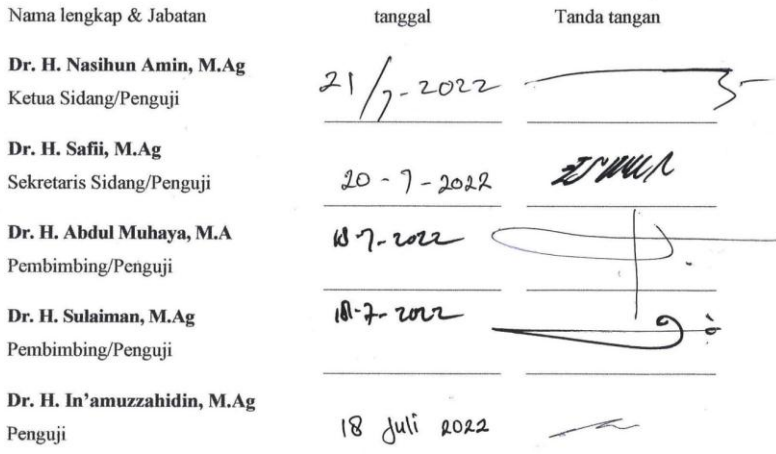 Nama lengkap & Jabatan tanggal Tanda tangan
Dr. H. Nasihun Amin, M.Ag
Ketua Sidang/Penguji 21/7-2022
Dr. H. Safii, M.Ag
Sekretaris Sidang/Penguji 20-7-2022
Dr. H. Abdul Muhaya, M.A 18-7-2022
Pembimbing/Penguji
Dr. H. Sulaiman, M.Ag 18-7-2022
Pembimbing/Penguji
Dr. H. In'amuzzahidin, M.Ag
Penguji 18 Juli 2022